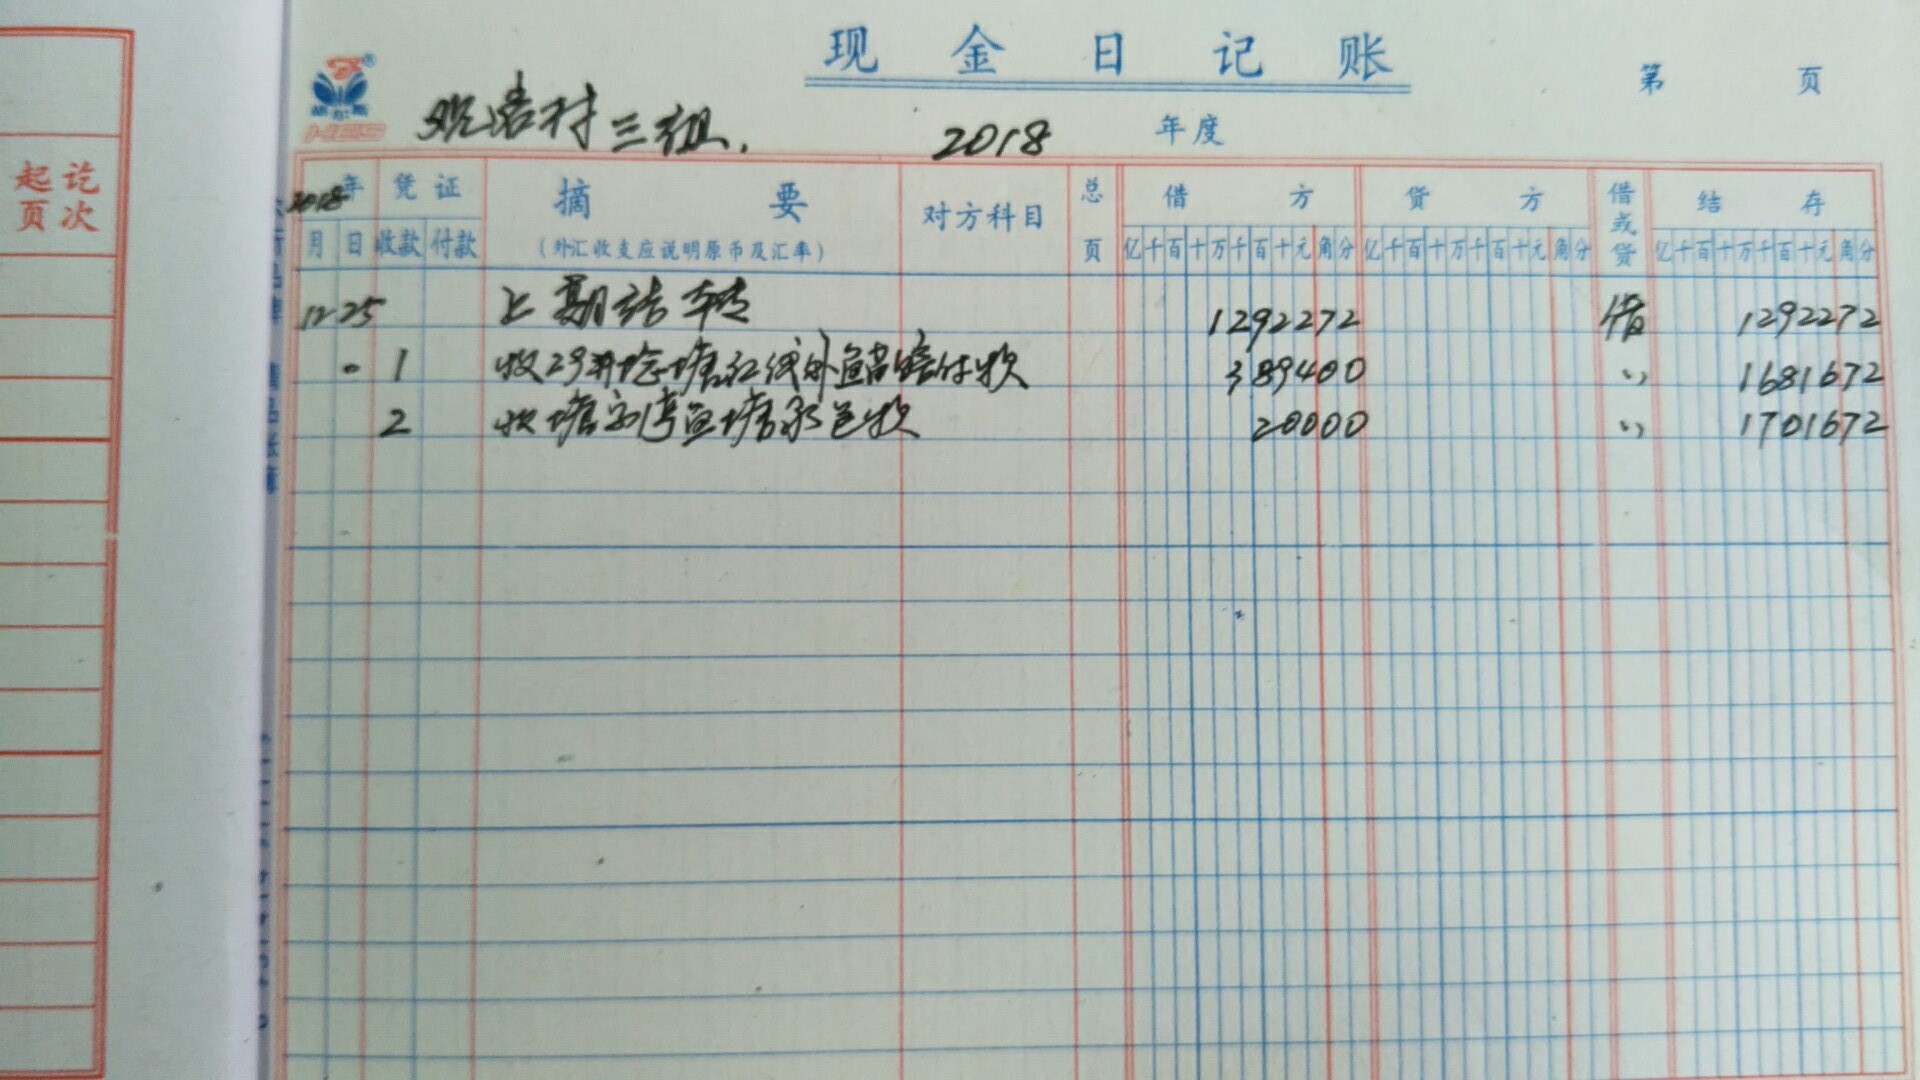 起讫
页次
现金日记账
第 页
HES
观音村三组. 2018 年度
2018 年 凭证 摘要 对方科目 总页 借方 贷方 借或贷 结存
月 日 收款 付款 (外汇收支应说明原币及汇率) 亿千百十万千百十元角分 亿千百十万千百十元角分 亿千百十万千百十元角分
12 25 上期结转 1292272 借 1292272
1 收 红线外鱼苗赔付款 389400 〃 1681672
2 收 湾鱼塘承包款 20000 〃 1701672